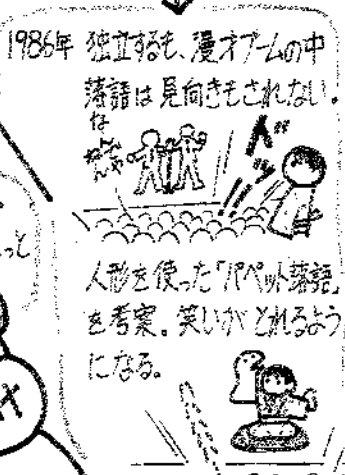 1986年 独立するも、漫才ブームの中
落語は見向きもされない。
なんでやねん
ドッ
人形を使った「パペット落語」
を考案。笑いがとれるよう
になる。
っと